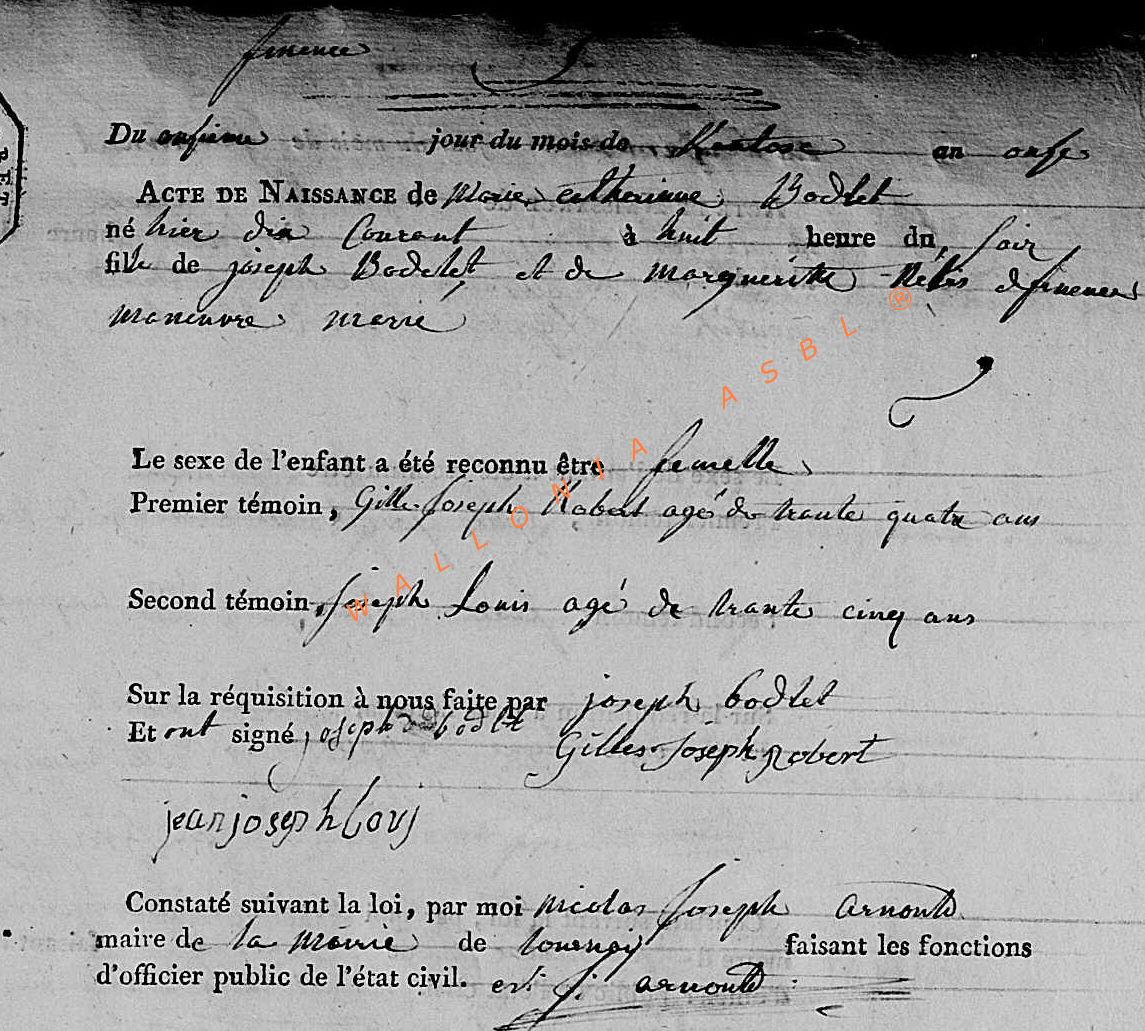 finence
Du onsieme jour du mois de Ventose an onse
ACTE DE NAISSANCE de Marie catherinne Bodlet
né hier dix Courant à huit heure du soir
fille de joseph Bodelet et de margueritte d finence
maneuvre marié
Le sexe de l'enfant a été reconnu être femelle
Premier témoin, Gille Joseph Robert agé de trante quatre ans
Second témoin, joseph Louis agé de trante cinq ans
Sur la réquisition à nous faite par joseph bodlet
Et ont signé joseph bodlet
Gilles Joseph Robert
jean joseph Louj
Constaté suivant la loi, par moi nicolas Joseph arnould
maire de la mairie de tournay faisant les fonctions
d'officier public de l'état civil. j. arnould
WALLONIA ASBL ®